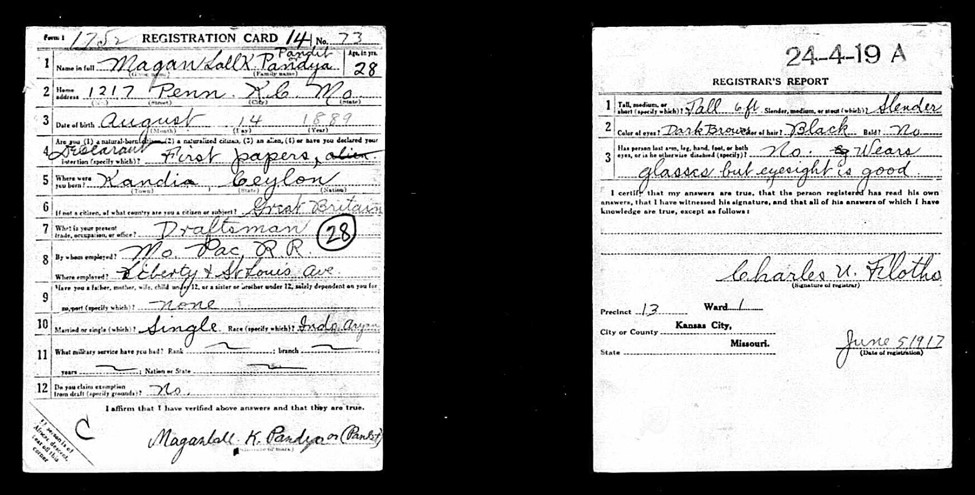 Form 1 1752 REGISTRATION CARD 14 No. 73
Pandit
1 Name in full Maganlall K. Pandya Age, in yrs. 28
(Given name) (Family name)
2 Home address 1217 Penn. K.C. Mo.
(No.) (Street) (City) (State)
3 Date of birth August 14 1889
(Month) (Day) (Year)
4 Are you (1) a natural-born citizen, (2) a naturalized citizen, (3) an alien, (4) or have you declared your
intention (specify which)? Declarant First papers, alien
5 Where were you born? Kandia Ceylon
(Town) (State) (Nation)
6 If not a citizen, of what country are you a citizen or subject? Great Britain
7 What is your present trade, occupation, or office? Draftsman 28
8 By whom employed? Mo. Pac. R R
Where employed? Liberty & St Louis Ave.
9 Have you a father, mother, wife, child under 12, or a sister or brother under 12, solely dependent on you for
support (specify which)? none
10 Married or single (which)? Single Race (specify which)? Indo Aryan
11 What military service have you had? Rank ; branch ;
years ; Nation or State
12 Do you claim exemption from draft (specify grounds)? No.
I affirm that I have verified above answers and that they are true.
C
Maganlall. K. Pandya or (Pandit)
If person is of African descent, tear off this corner
24-4-19 A
REGISTRAR'S REPORT
1 Tall, medium, or short (specify which)? Tall 6 ft Slender, medium, or stout (which)? Slender
2 Color of eyes? Dark Brown Color of hair? Black Bald? No
3 Has person lost arm, leg, hand, foot, or both
eyes, or is he otherwise disabled (specify)? No. Wears
glasses but eyesight is good
I certify that my answers are true, that the person registered has read his own
answers, that I have witnessed his signature, and that all of his answers of which I have
knowledge are true, except as follows:
Charles U. Flotho
(Signature of registrar)
Precinct 13 Ward 1
City or County Kansas City,
State Missouri.
June 5 1917
(Date of registration)